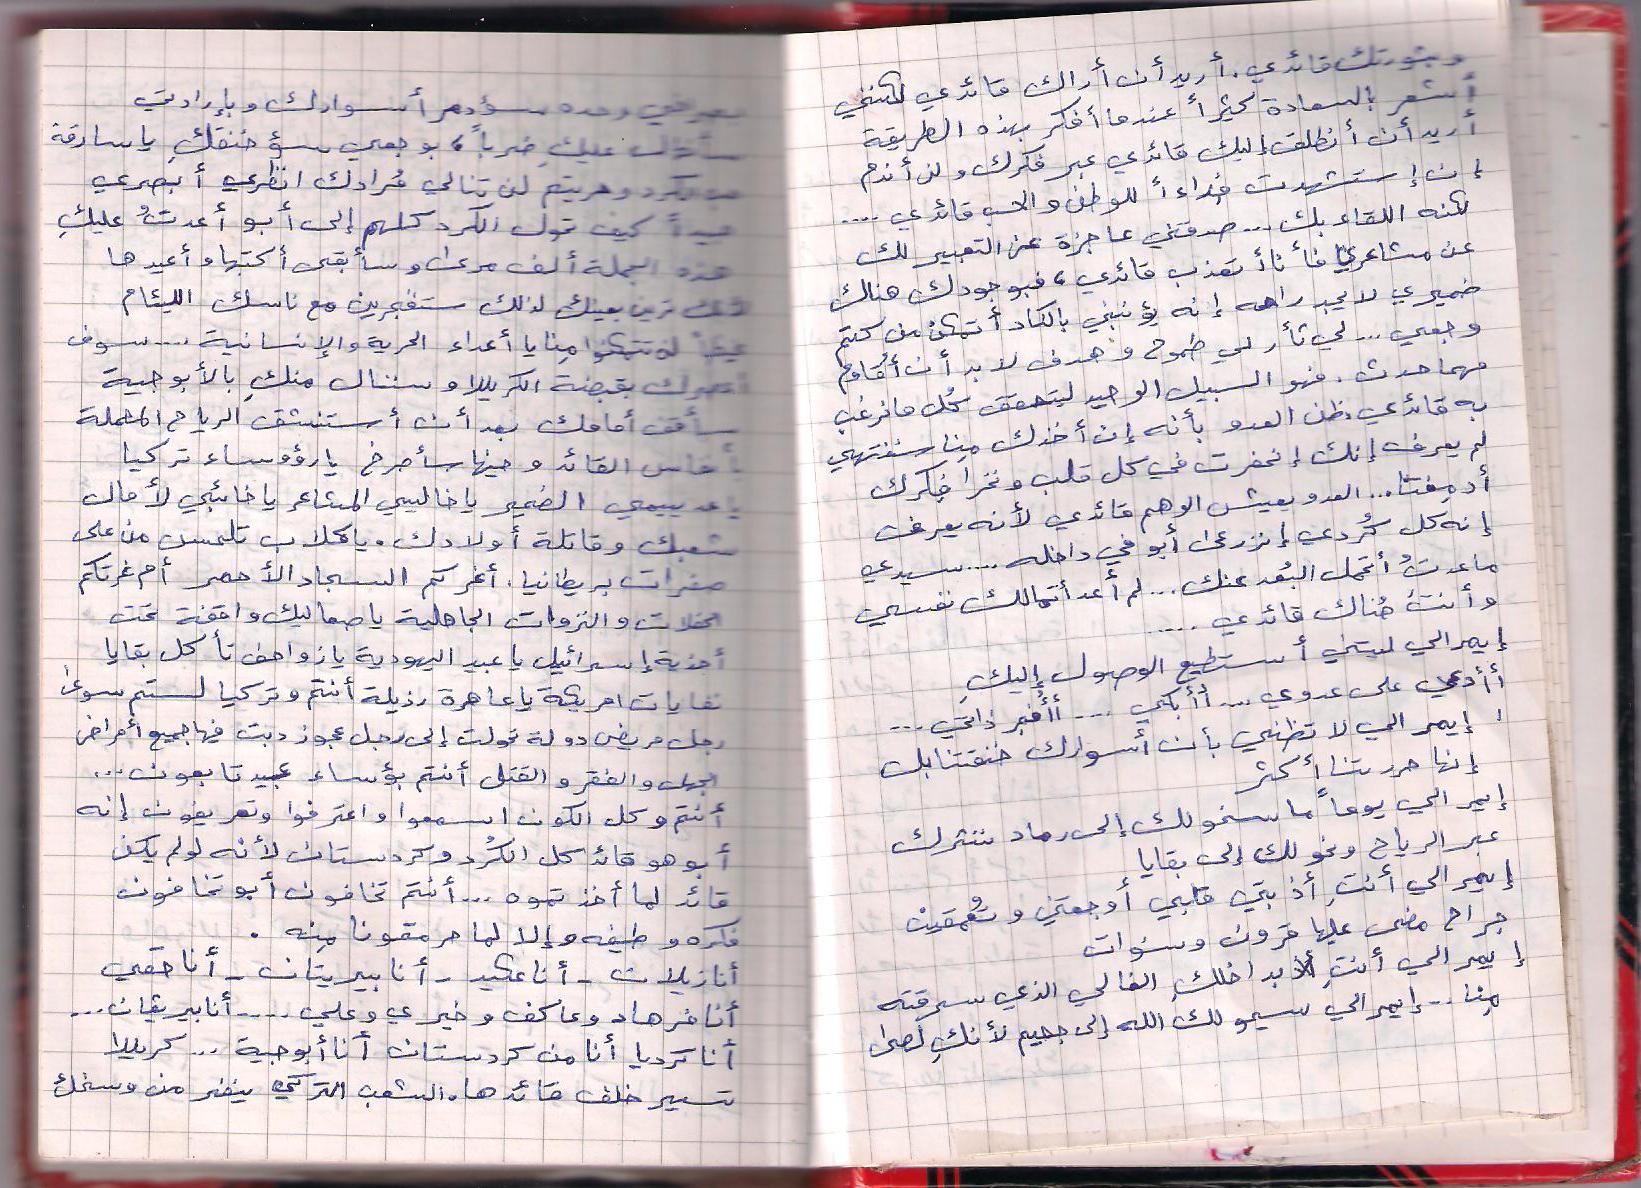 وبثورتك قائدي. أريد أن أراك قائدي لكنني
أشعر بالسعادة كثيراً عندما أفكر بهذه الطريقة
أريد أن أنطلق إليك قائدي عبر فكرك ولن أندم
إن إستشهدت فداءاً للوطن والحب قائدي ....
لكنه اللقاء بك... صدقني عاجزة عن التعبير لك
عن مشاعري فأنا أتعذب قائدي، فبوجودك هناك
ضميري لا يجد راحه إنه يؤنبني بالكاد أتمكن من كتم
وجعي... لي ثأر لي طموح وهدف لا بد أن أقاوم
مهما حدث. فهو السبيل الوحيد ليتحقق كُل ما نرغب
به قائدي ظن العدو بأنه إن أخذك مِنا سننتهي
لم يعرف إنك إنحفرت في كل قلب ونخرا فِكرك
أدمِغتنا... العدو يعيش الوهم قائدي لأنه يعرف
إنه كل كُردي إنزرع أبو في داخله.... سيدي
ما عدتُ أتحمل البُعد عنك... لم أعد أتمالك نفسي
وأنتَ هُناك قائدي .....
إيمرالي ليتني أستطيع الوصول إليكِ
أأدعي على عدوي... أأبكي .... أأفجر ذاتي ...
إيمرالي لا تظنني بأن أسوارك خنقتنا بل
إنها حررتنا أكثر
إيمرالي يوماً ما سنحولك إلى رماد ننثرك
عبر الرياح ونحولك إلى بقايا
إيمرالي أنتِ أذبتي قلبي أوجعتني وتُعمقين
جراح مضى عليها قرون وسنوات
إيمرالي أنتِ بداخلكِ الغالي الذي سرقته
مِنا... إيمرالي سيحولك الله إلى جحيم لأنكِ لصى
وحده سؤدمر أسوارك وبإرادتي
عليك ضرباً، بوجعي سؤخنقكِ يا سارقة
الكرد وحريتم لن تنالي مُرادك انظري أبصري
جيداً كيف تحول الكرد كلهم إلى أبو أعدتُ عليكِ
هذه الجملة ألف مرى وسأبقى أكتبها وأعيدها
ترين بعينك لذلك ستفجرين مع ناسك الليئام
لن تتمكنوا مِنا يا أعداء الحرية والإنسانية .... سوف
بقبضة الكريلا وسننال منكِ بالأبوجية
سأقف أمامك بعد أن أستنشق الرياح المحملة
القائد وحينها سأصرخ يا رؤوساء تركيا
يا عديمي الضمير يا خاليي المشاعر يا خائبي لأمال
شعبك وقاتلة أولادك. يا كلاب تلحس من على
بريطانيا. أغركم السجاد الأحمر أم غرتكم
الحفلات والثروات الجاهلية يا صعاليك واقفة تحت
أحذية إسرائيل يا عبيد اليهودية يا زواحف تأكل بقايا
نفايات امريكة يا عاهرة رذيلة أنتم وتركيا لستم سوىٰ
رجل مريض دولة تحولت إلى رجل عجوز دبت فيها جميع أمراض
الجهل والفقر والقتل أنتم بؤساء عبيد تابعون ...
أنتم وكل الكون اسمعوا واعترفوا وتعرفون إنه
أبو هو قائد كل الكُرد وكردستان لأنه لو لم يكن
قائد لما أخذتموه ... أنتم تخافون أبو تخافون
فكره وطيفه وإلا لما حرمتونا مِنه .
أنا زيلان - أنا عكيد - أنا بيريتان - أنا حقي
أنا فرهاد وعاكف وخيري وعلي .... أنا بيريفان ...
أنا كرديا أنا من كردستان أنا أبوجية ... كريلا
تسير خلف قائدها. الشعب التركي ينفر من وسخك